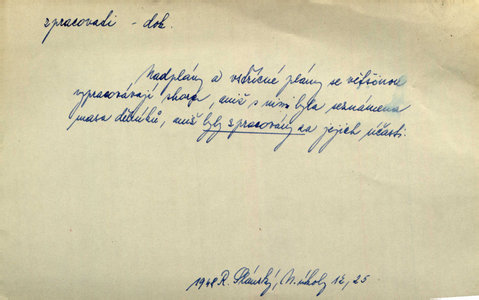 zpracovati - dok.
Nadplány a vstřícné plány se většinou
vypracovávají shora, aniž s nimi byla seznámena
masa dělníků, aniž byly zpracovány za jejich účasti.
1948 R. Slánský, N. úkoly 12, 25